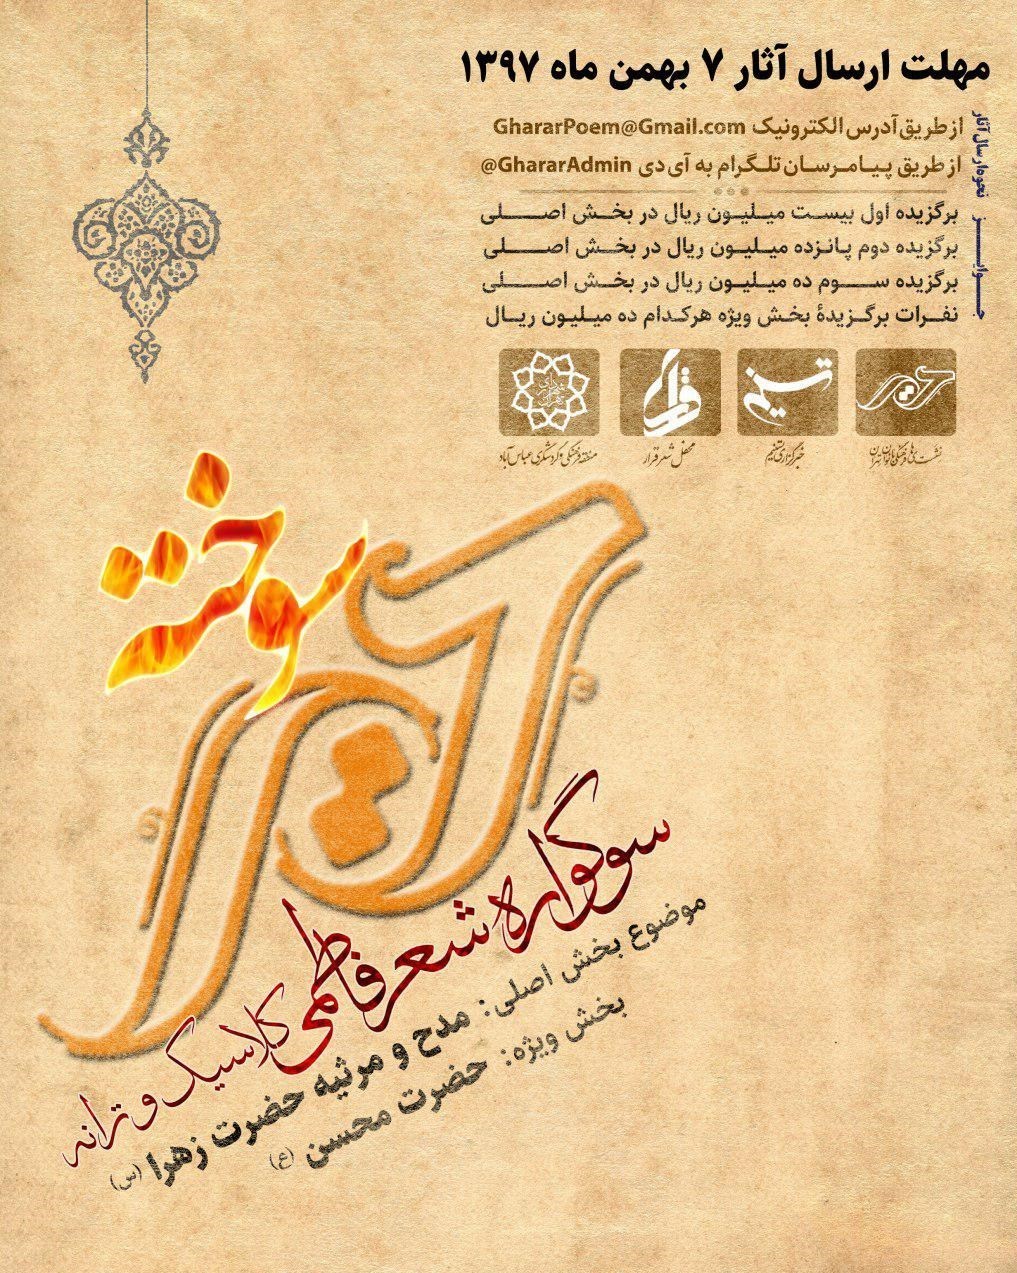 مهلت ارسال آثار ۷ بهمن ماه ۱۳۹۷
نحوه ارسال آثار
از طریق آدرس الکترونیک GhararPoem@Gmail.com
از طریق پیامرسان تلگرام به آی دی GhararAdmin@
جوایز
برگزیده اول بیست میلیون ریال در بخش اصلی
برگزیده دوم پانزده میلیون ریال در بخش اصلی
برگزیده سوم ده میلیون ریال در بخش اصلی
نفرات برگزیدهٔ بخش ویژه هرکدام ده میلیون ریال
تسنیم
قرار
خبرگزاری تسنیم
محفل شعر قرار
منطقه فرهنگی و گردشگری عباس آباد
سوخته
سوگواره شعر فاطمی کلاسیک و ترانه
موضوع بخش اصلی: مدح و مرثیه حضرت زهرا (س)
بخش ویژه: حضرت محسن (ع)